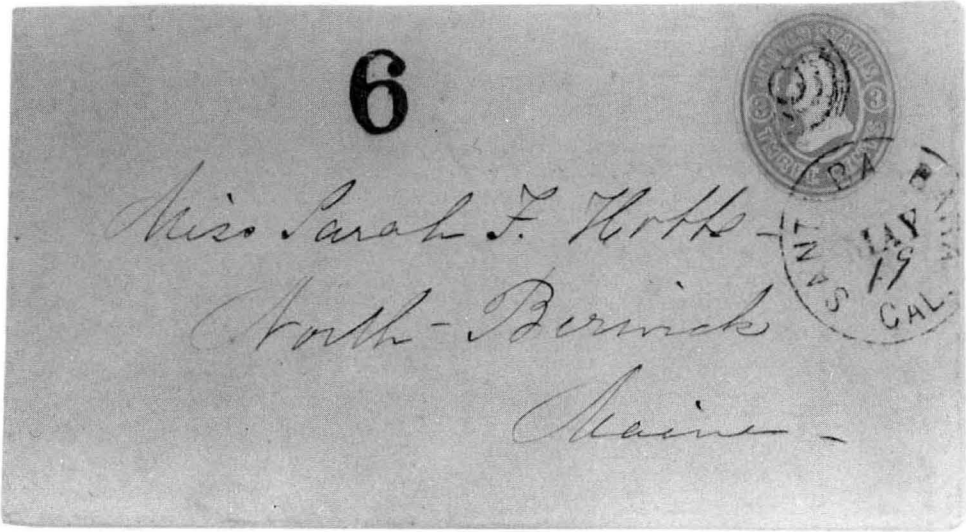 6
UNITED STATES
3 3
THREE CENTS
SANTA BARBARA
MAY
19
CAL.
Miss Sarah F. Hobbs -
North - Berwick
Maine -